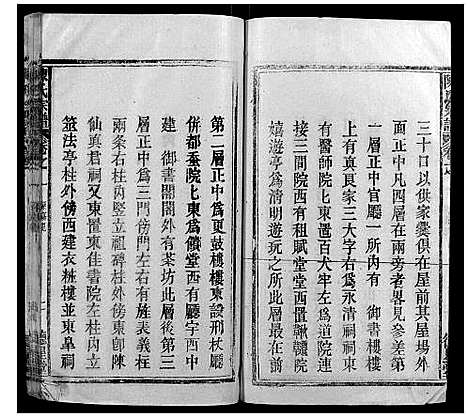 三十口以供家爨俱在屋前其屋場外
面正中凡四層在兩旁者畧見參差第
一層正中官廳一所內有　御書樓樓
上有真良家三大字右爲永清祠祠東
有醫師院七東置百犬牢左爲道院連
接三間院西有租賦堂堂西置鞦韆院
嬉遊亭爲清明遊玩之所
第二層正中爲更鼓樓樓東設刑杖廳
併都蚕院七東爲饋堂西有廳室西中
建　御書閣閣外有茶坊此層後第三
層正中爲三門傍門左右有旌表義柱
兩條右柱內竪立祖碑柱外傍東卽陳
仙真君祠又東置東佳書院左柱內立
筮法亭柱外傍西建衣粧樓並東皐祠